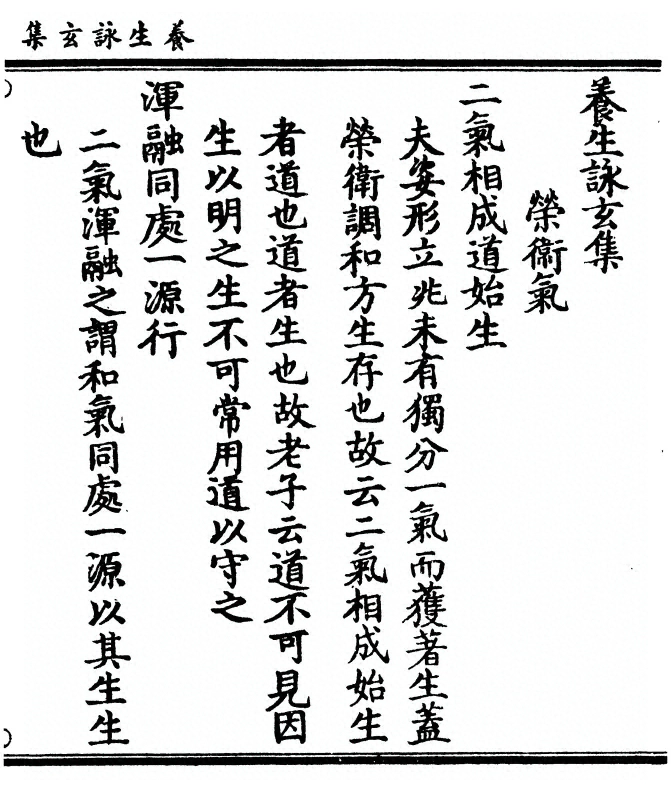 養生詠玄集
養生詠玄集
榮衛氣
二氣相成道始生
夫姿形立兆未有獨分一氣而獲著生蓋
榮衛調和方生存也故云二氣相成始生
者道也道者生也故老子云道不可見因
生以明之生不可常用道以守之
渾融同處一源行
二氣渾融之謂和氣同處一源以其生生
也